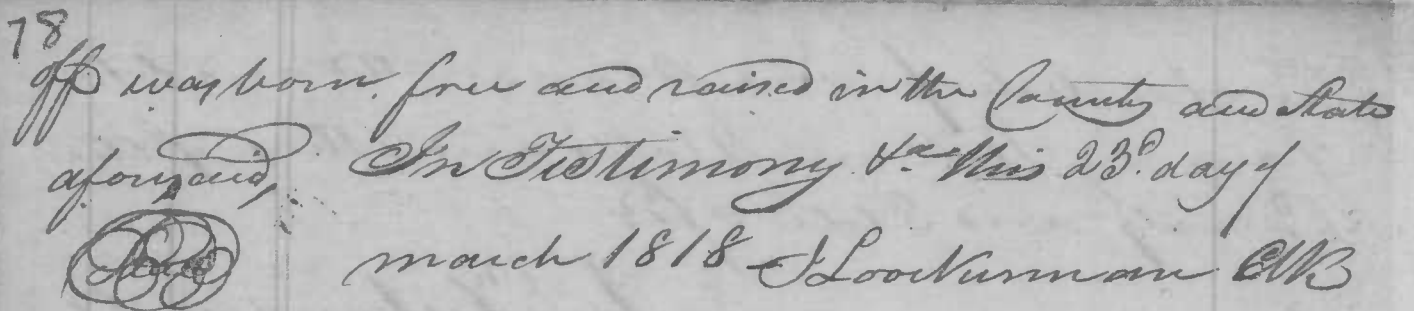 78
off was born free and raised in the County and State
aforesaid, In Testimony &c this 23d. day of
Seal march 1818 J Loockerman Clk